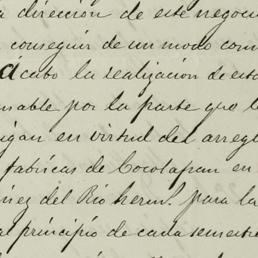 a dirección de este negoci
conseguir de un modo com
á cabo la realización de est
nsable por la parte que l
igan en virtud del arregl
fabricas de Cocolapan en
ñez del Rio herm.ˢ para la
al principio de cada semestre